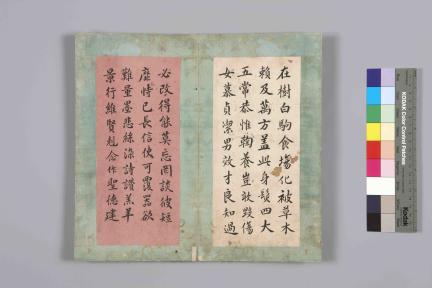 在樹白駒食場化被草木
賴及萬方盖此身髮四大
五常恭惟鞠養豈敢毀傷
女慕貞潔男效才良知過
必改得能莫忘罔談彼短
靡恃己長信使可覆器欲
難量墨悲絲染詩讚羔羊
景行維賢尅念作聖德建
KODAK Color Control Patches
Kodak